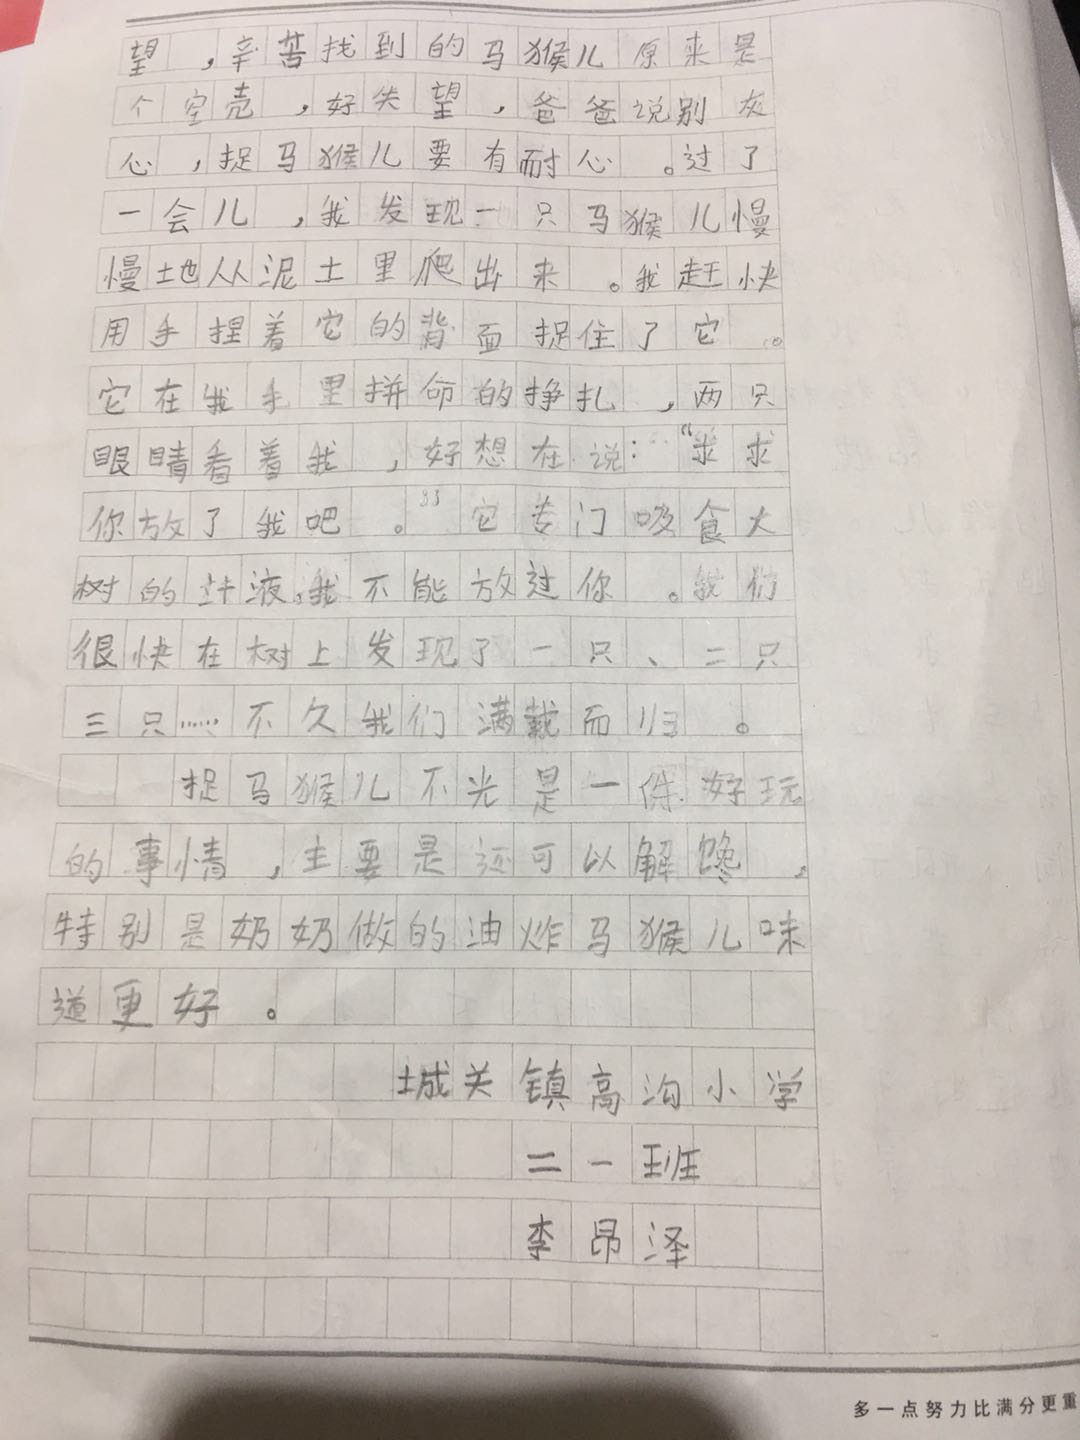 望，辛苦找到的马猴儿原来是
个空壳，好失望，爸爸说别灰
心，捉马猴儿要有耐心。过了
一会儿，我发现一只马猴儿慢
慢地从泥土里爬出来。我赶快
用手捏着它的背面捉住了它。
它在我手里拼命的挣扎，两只
眼睛看着我，好想在说：“求求
你放了我吧。”它专门吸食大
树的汁液，我不能放过你。我们
很快在树上发现了一只、二只
三只……不久我们满载而归。
捉马猴儿不光是一件好玩
的事情，主要是还可以解馋，
特别是奶奶做的油炸马猴儿味
道更好。
城关镇高沟小学
二一班
李昂泽
多一点努力比满分更重